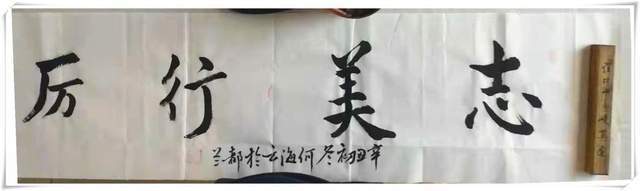 志美行厉
辛丑初冬何海云於都兰